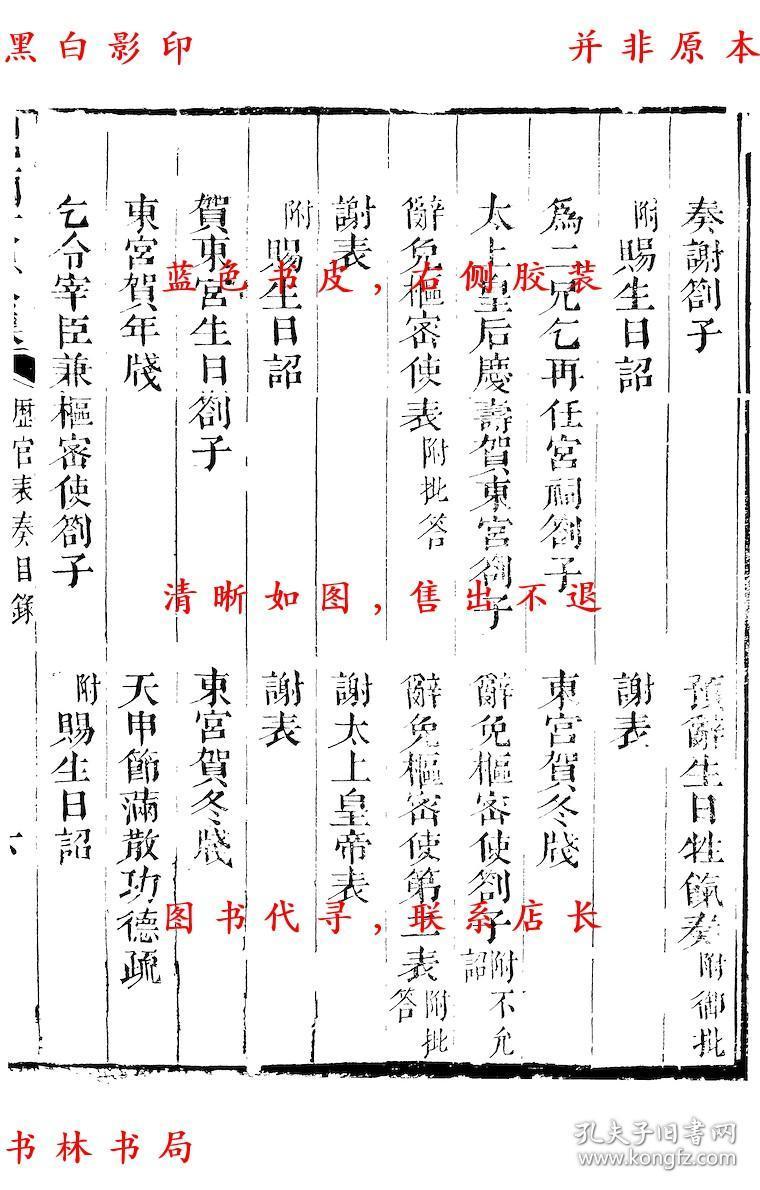 黑白影印
并非原本
奏謝劄子
預辭生日牲餼奏 附御批
附賜生日詔
謝表
為二兄乞再任宮祠劄子
東宮賀冬牋
太上皇后慶壽賀東宮劄子
辭免樞密使劄子 附不允詔
辭免樞密使表 附批答
辭免樞密使第二表 附批答
謝表
謝太上皇帝表
附賜生日詔
謝表
賀東宮生日劄子
東宮賀冬牋
東宮賀年牋
天申節滿散功德疏
乞令宰臣兼樞密使劄子
附賜生日詔
歷官表奏目錄
六
蓝色书皮，右侧胶装
清晰如图，售出不退
图书代寻，联系店长
书林书局
孔夫子旧书网
www.kongfz.com